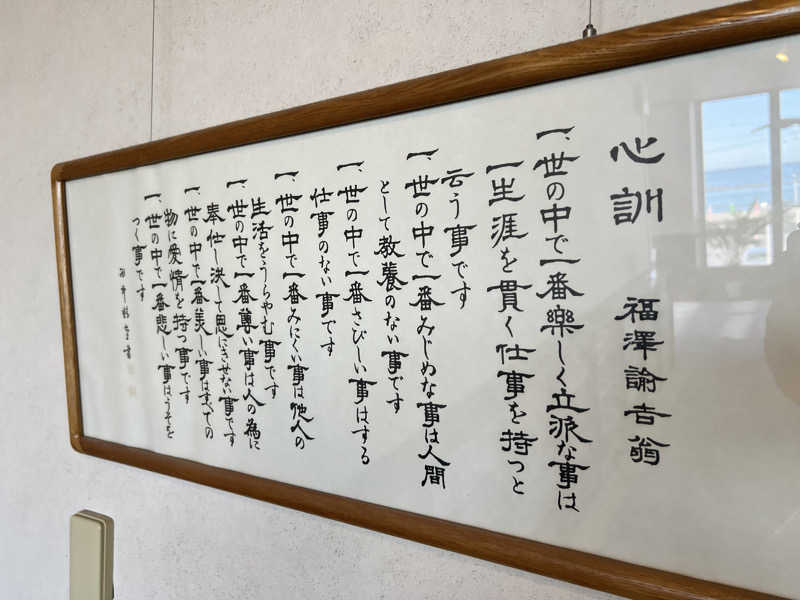 心訓
福澤諭吉翁
一、世の中で一番樂しく立派な事は
一生涯を貫く仕事を持つと
云う事です
一、世の中で一番みじめな事は人間
として教養のない事です
一、世の中で一番さびしい事はする
仕事のない事です
一、世の中で一番みにくい事は他人の
生活をうらやむ事です
一、世の中で一番尊い事は人の為に
奉仕し決して恩にきせない事です
一、世の中で一番美しい事はすべての
物に愛情を持つ事です
一、世の中で一番悲しい事はうそを
つく事です